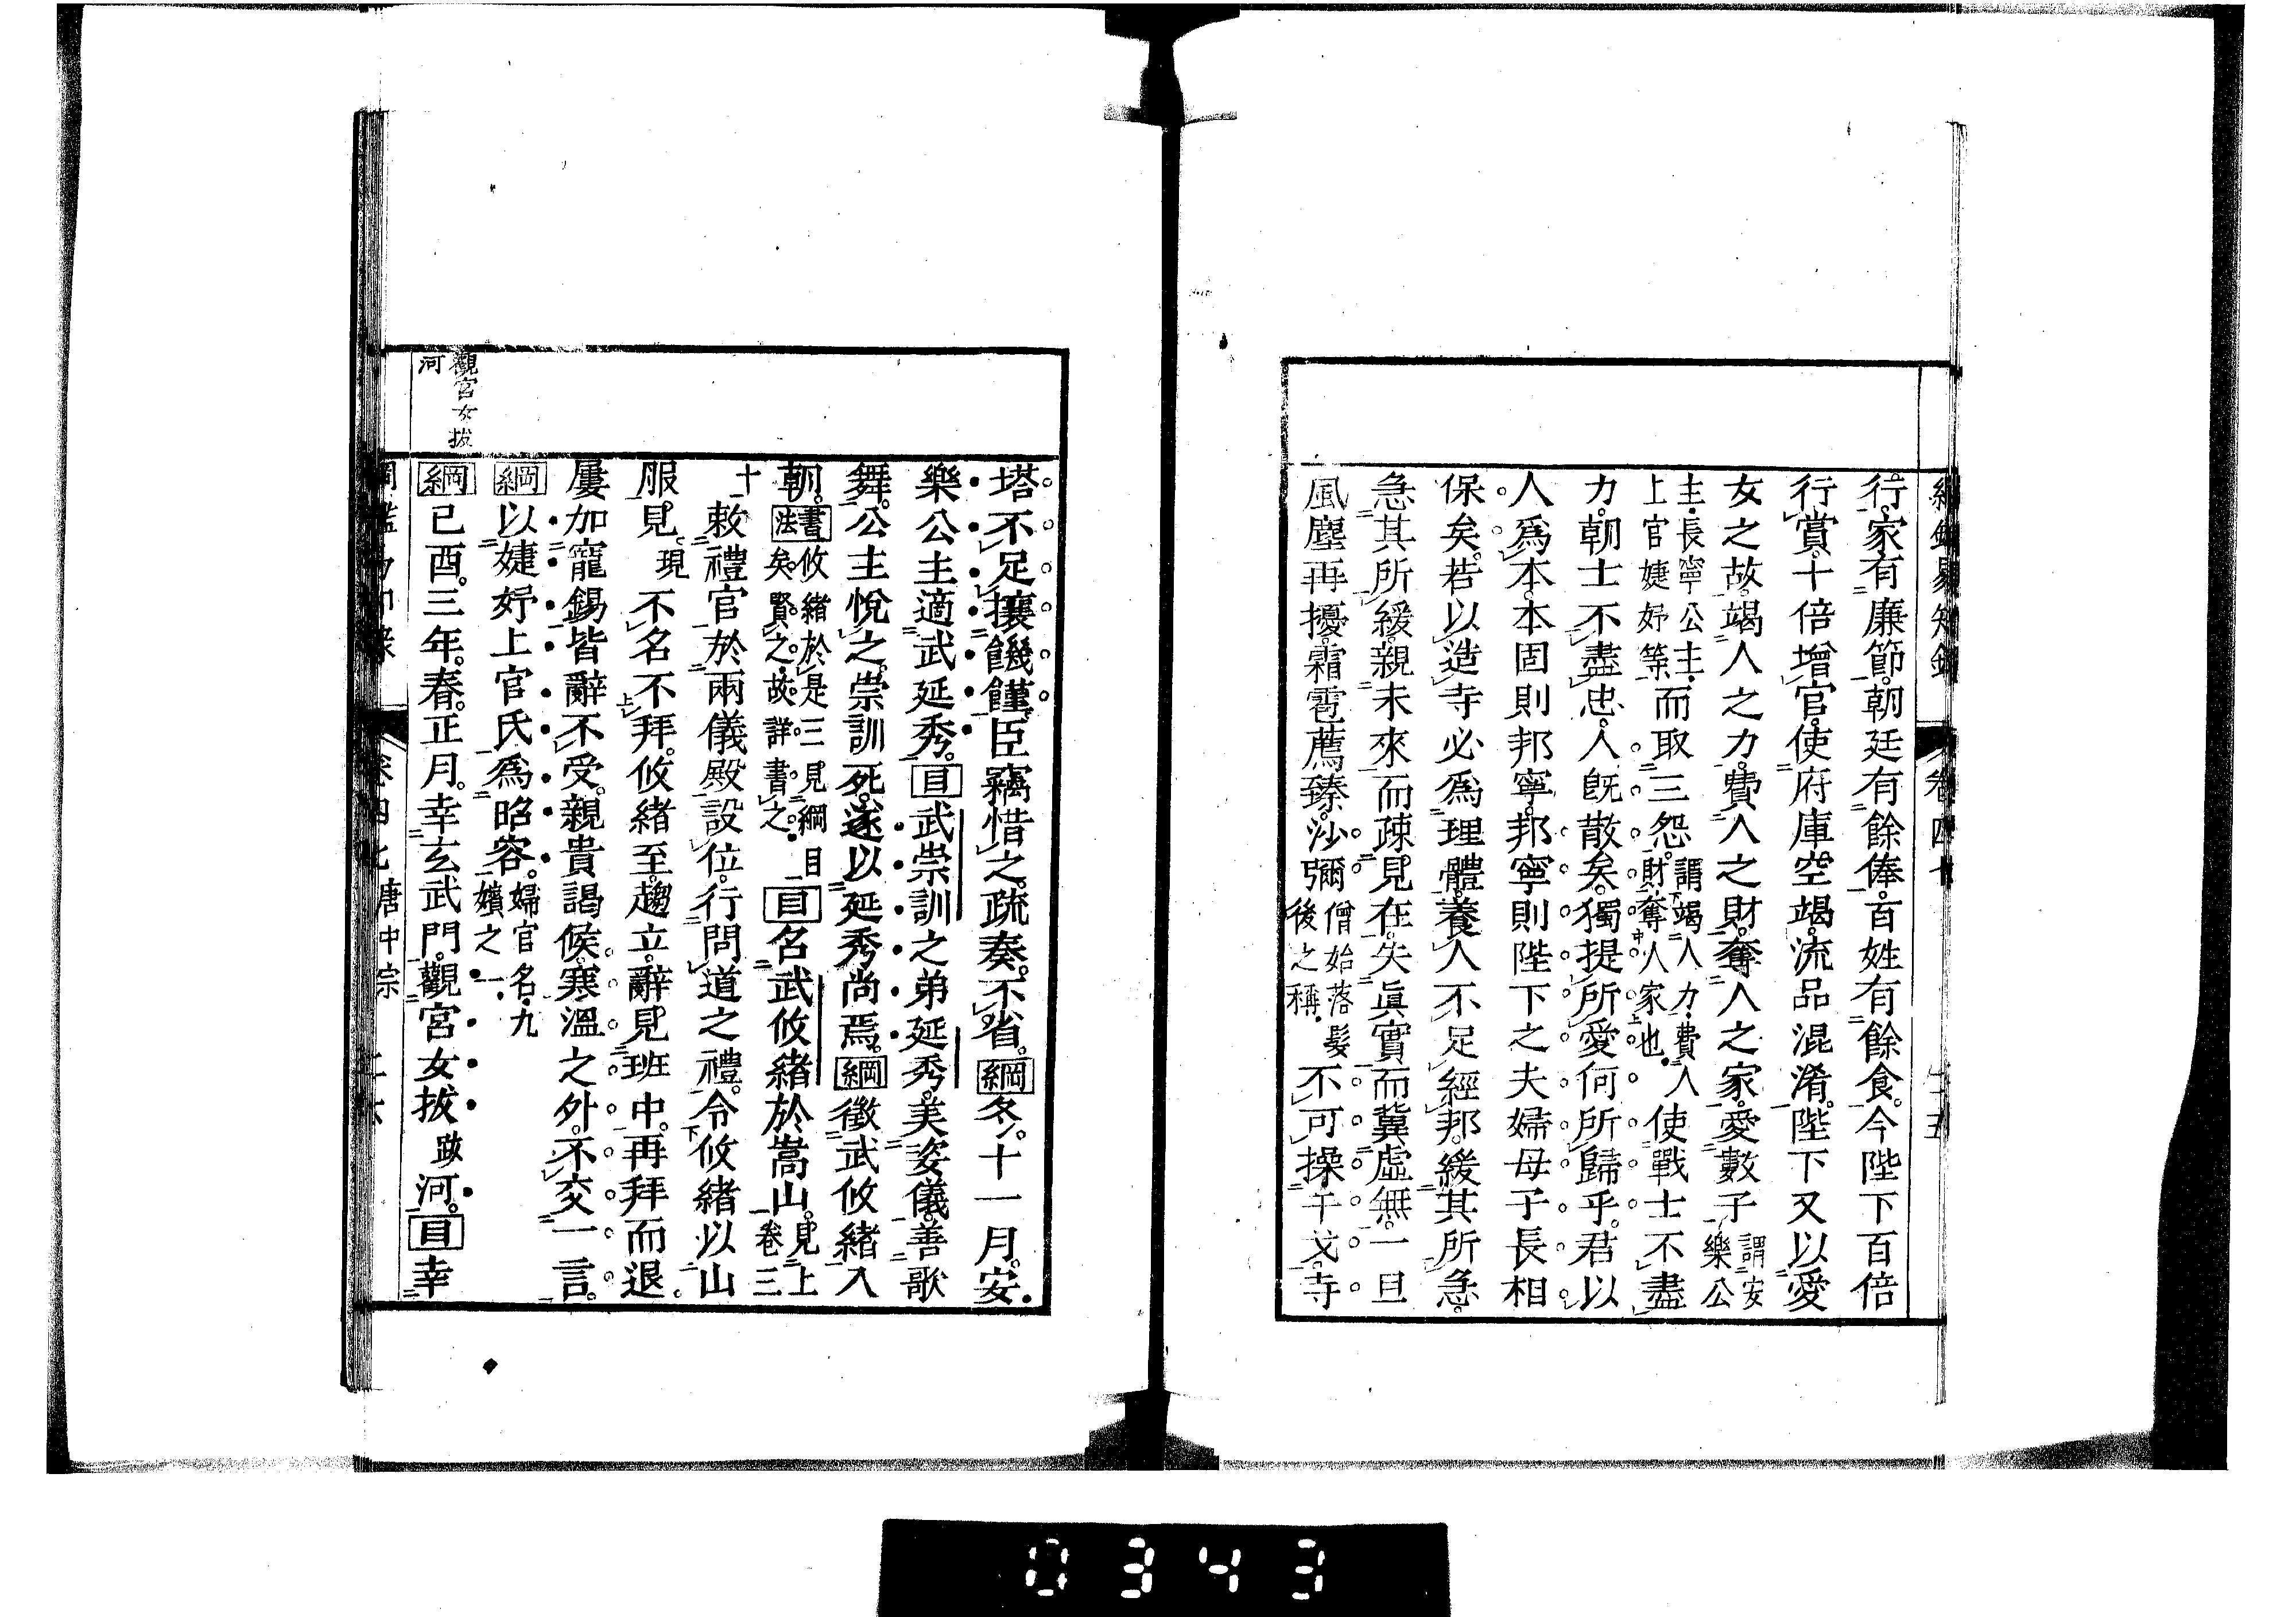 行。家有廉節。朝廷有餘俸。百姓有餘食。今陛下百倍
行賞。十倍增官。使府庫空竭。流品混淆。陛下又以愛
女之故。竭人之力。費人之財。奪人之家。愛數子謂安樂公
主。長寧公主。上官婕妤等而取三怨。謂竭人力。費人財。奪人家也。使戰士不盡
力。朝士不盡忠。人既散矣。獨提所愛何所歸乎。君以
人爲本。本固則邦寧。邦寧則陛下之夫婦母子長相
保矣。若以造寺必爲理體。養人不足經邦。緩其所急。
急其所緩。親未來而疎見在。失眞實而冀虛無。一旦
風塵再擾。霜雹薦臻。沙彌僧始落髮後之稱。不可操干戈。寺
塔不足攘饑饉。臣竊惜之。疏奏。不省。綱冬。十一月。安
樂公主適武延秀。目武崇訓之弟延秀。美姿儀。善歌
舞。公主悅之。崇訓死。遂以延秀尚焉。綱徵武攸緒入
朝。書法攸緒於是三見綱目矣。賢之。故詳書之。目名武攸緒於嵩山。見上卷三
十敕禮官於兩儀殿設位。行問道之禮。令攸緒以山
服見。現不名不拜。攸緒至。趨立。辭見班中。再拜而退。
屢加寵錫皆辭不受。親貴謁候。寒溫之外。不交一言。
綱以婕妤上官氏爲昭容。婦官名。九嬪之一。
綱己酉。三年。春。正月。幸玄武門。觀宮女拔跋河。目幸
觀宮女拔
河
卷四七 唐中宗
0343